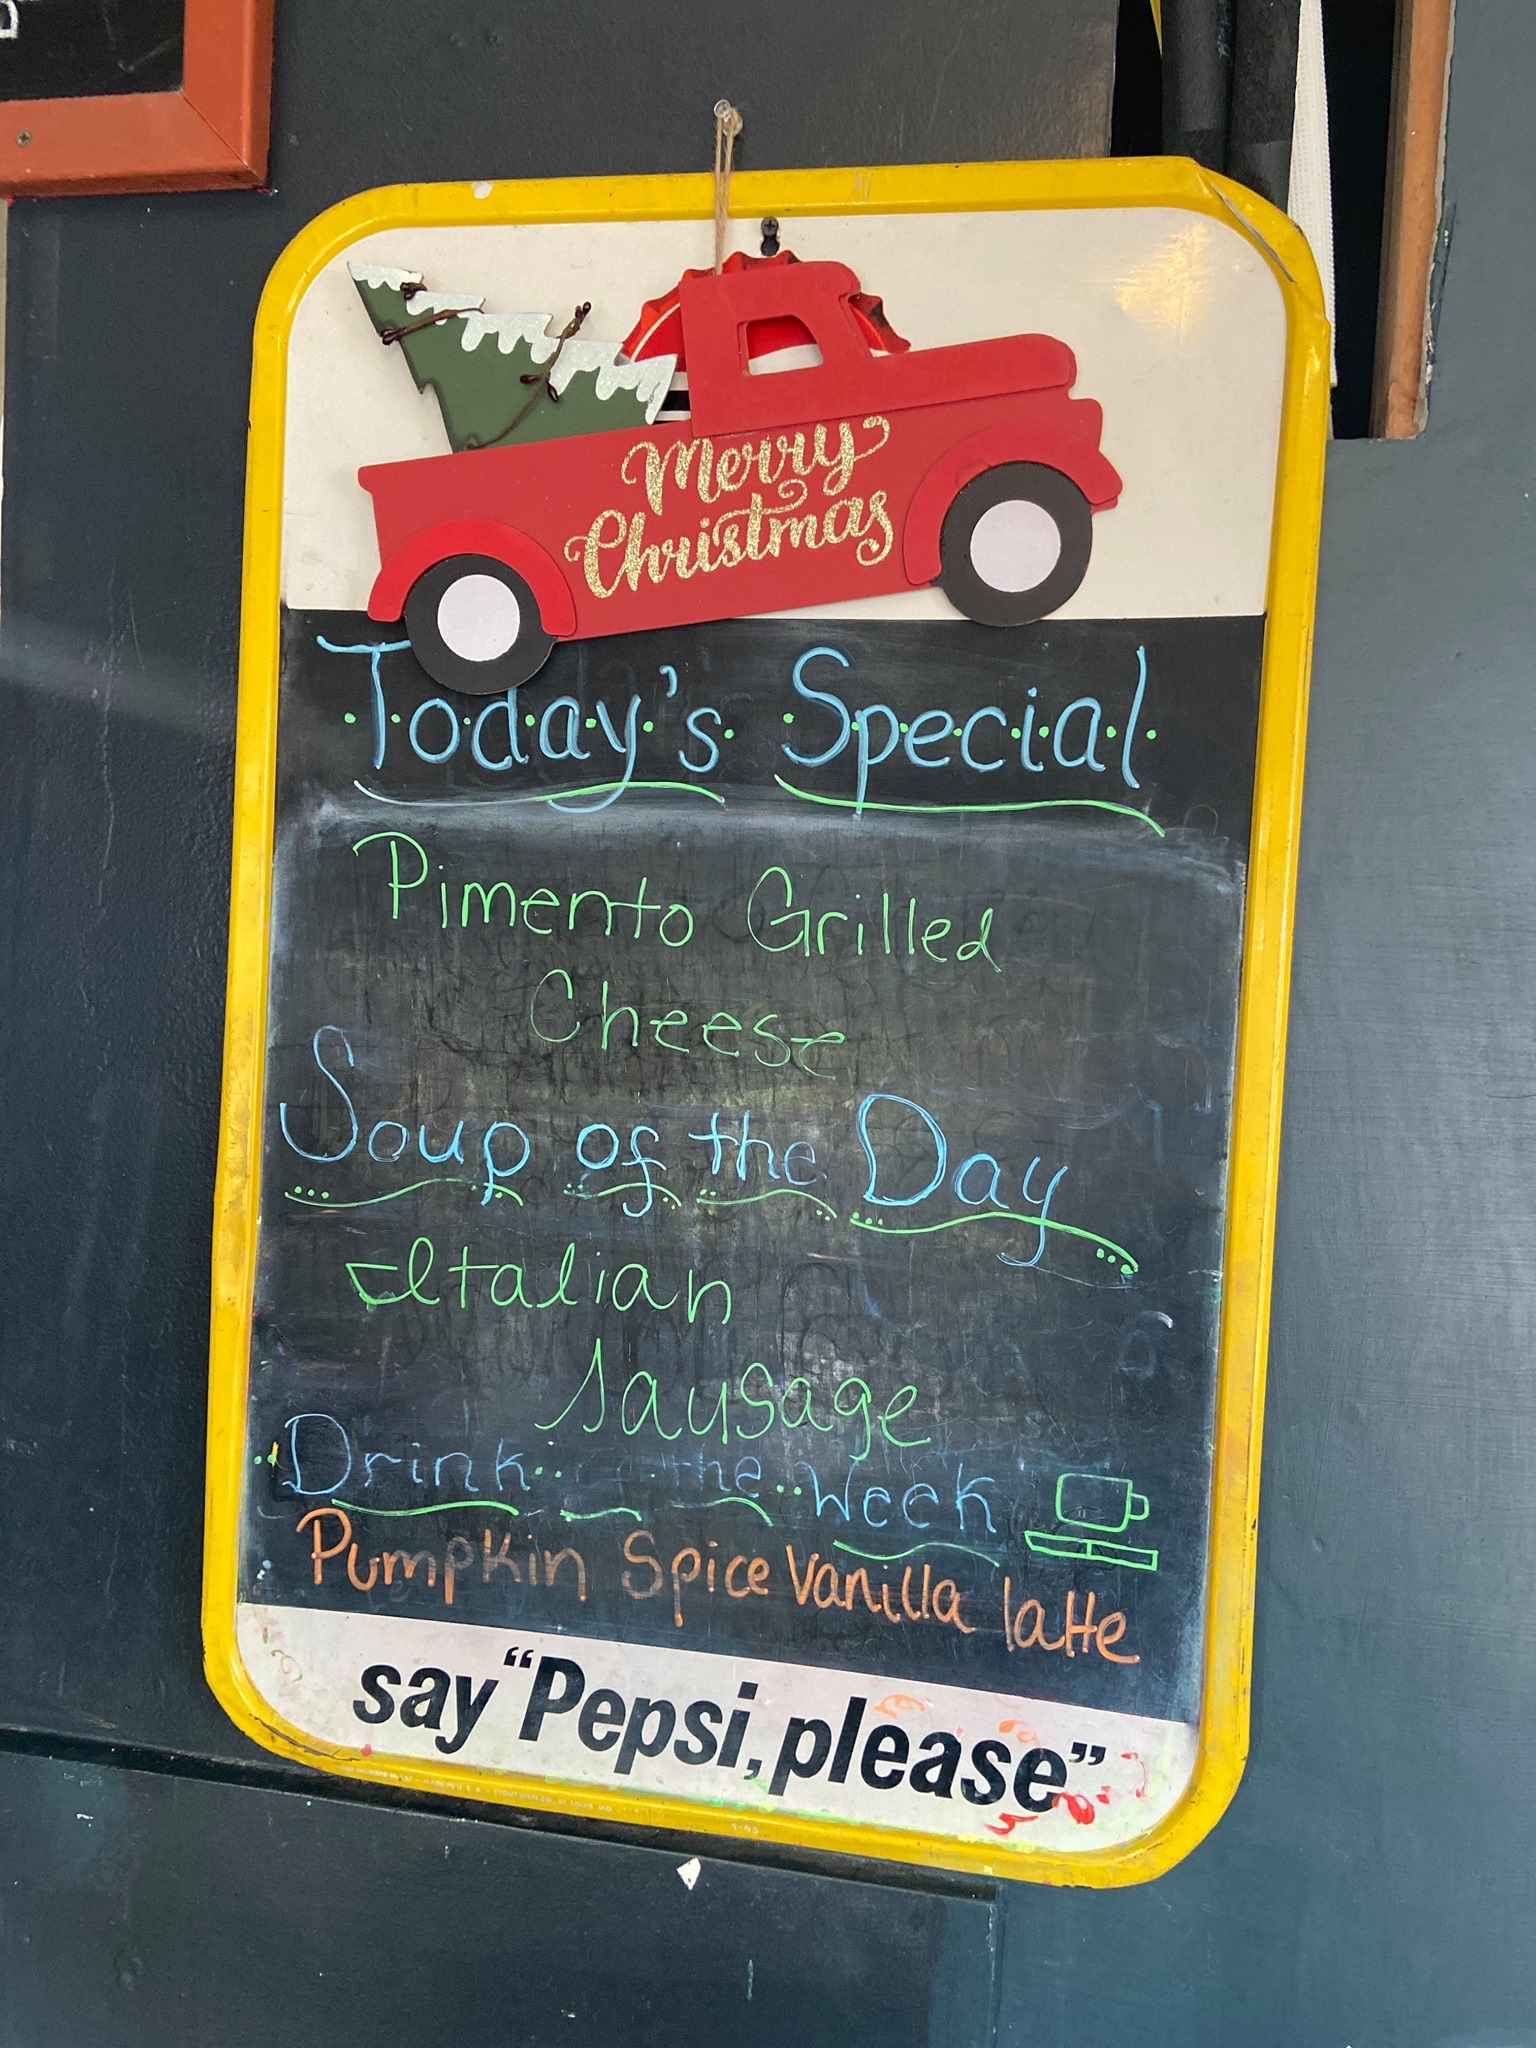 Merry
Christmas
Today's Special
Pimento Grilled
Cheese
Soup of the Day
Italian
Sausage
Drink the Week
Pumpkin Spice Vanilla latte
say “Pepsi, please”